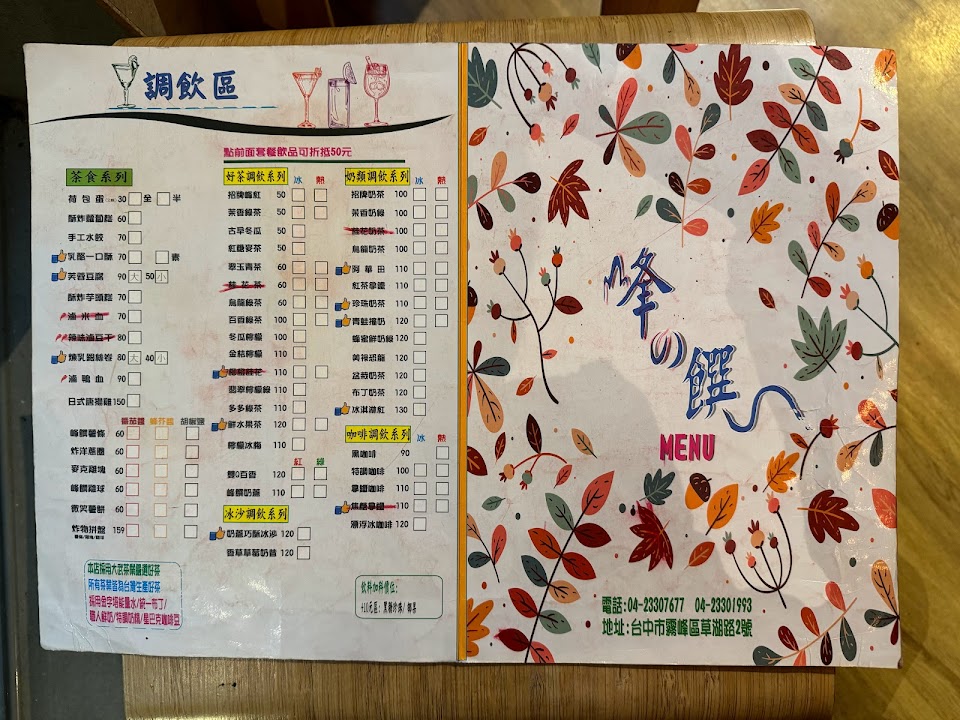 調飲區
點前面套餐飲品可折抵50元
茶食系列
荷包蛋 30 全 半
酥炸蘿蔔糕 60
手工水餃 70
乳酪一口酥 70 素
芙蓉豆腐 90 大 50 小
酥炸芋頭糕 70
滷米血 70
辣味滷豆干 80
煉乳銀絲卷 80 大 40 小
滷鴨血 90
日式唐揚雞 150
番茄醬 蜂芥醬 胡椒鹽
峰饌薯條 60
炸洋蔥圈 60
麥克雞塊 60
峰饌雞球 60
微笑薯餅 60
炸物拼盤 159
本店採用大武茶葉嚴選好茶
所有茶葉皆為台灣生產好茶
採用金字塔能量水/統一布丁/
職人鮮奶/特調奶精/星巴克咖啡豆
好茶調飲系列 冰 熱
招牌峰紅 50
茉香綠茶 50
古早冬瓜 50
紅糖麥茶 50
翠玉青茶 60
桂花茶 60
烏龍綠茶 60
百香綠茶 100
冬瓜檸檬 100
金桔檸檬 110
檸檬桂花 110
翡翠檸檬綠 110
多多綠茶 110
鮮水果茶 120
檸檬冰梅 110
紅 綠
顆Q百香 120
峰饌奶蓋 110
冰沙調飲系列
奶蓋巧酥冰沙 120
香草草莓奶昔 120
奶類調飲系列 冰 熱
招牌奶茶 100
茉香奶綠 100
桂花奶茶 100
烏龍奶茶 100
阿華田 110
紅茶拿鐵 110
珍珠奶茶 110
青蛙撞奶 120
蜂蜜鮮奶綠 120
美祿恐龍 120
盆栽奶茶 120
布丁奶茶 120
冰淇淋紅 130
咖啡調飲系列 冰 熱
黑咖啡 90
特調咖啡 100
拿鐵咖啡 100
焦糖拿鐵 110
漂浮冰咖啡 120
飲料加料價位:
+10元區: 黑糖珍珠/椰果
峰の饌
MENU
電話:04-23307677 04-23301993
地址:台中市霧峰區草湖路2號